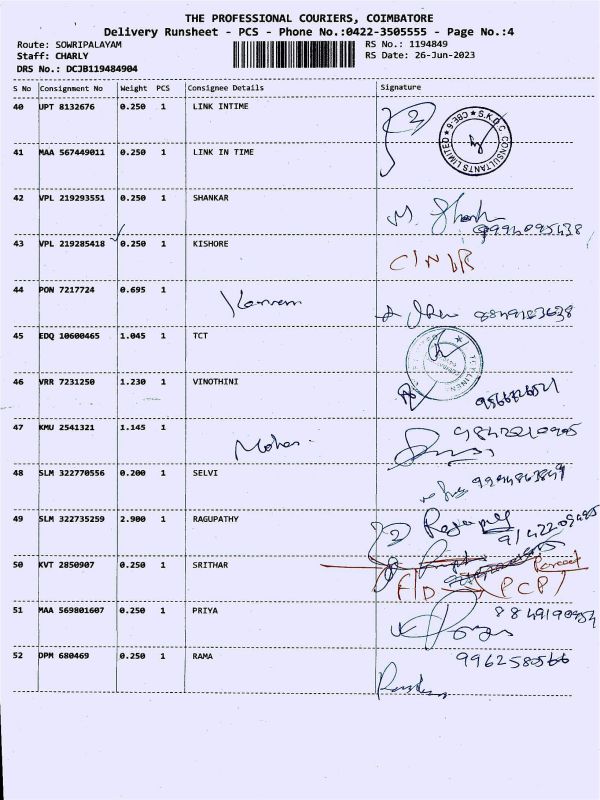 THE PROFESSIONAL COURIERS, COIMBATORE
Delivery Runsheet - PCS - Phone No.:0422-3505555 - Page No.:4
Route: SOWRIPALAYAM RS No.: 1194849
Staff: CHARLY RS Date: 26-Jun-2023
DRS No.: DCJB119484904
S No Consignment No Weight PCS Consignee Details Signature
40 UPT 8132676 0.250 1 LINK INTIME
2
S.K.D.C CONSULTANTS LIMITED ★ CBE-6 ★
41 MAA 567449011 0.250 1 LINK IN TIME
42 VPL 219293551 0.250 1 SHANKAR
M.
43 VPL 219285418 0.250 1 KISHORE
44 PON 7217724 0.695 1
8849183638
45 EDQ 10600465 1.045 1 TCT
46 VRR 7231250 1.230 1 VINOTHINI
47 KMU 2541321 1.145 1 Mohan.
48 SLM 322770556 0.200 1 SELVI
49 SLM 322735259 2.900 1 RAGUPATHY
2
50 KVT 2850907 0.250 1 SRITHAR
F/D PCP)
51 MAA 569801607 0.250 1 PRIYA
52 DPM 680469 0.250 1 RAMA 9962580566